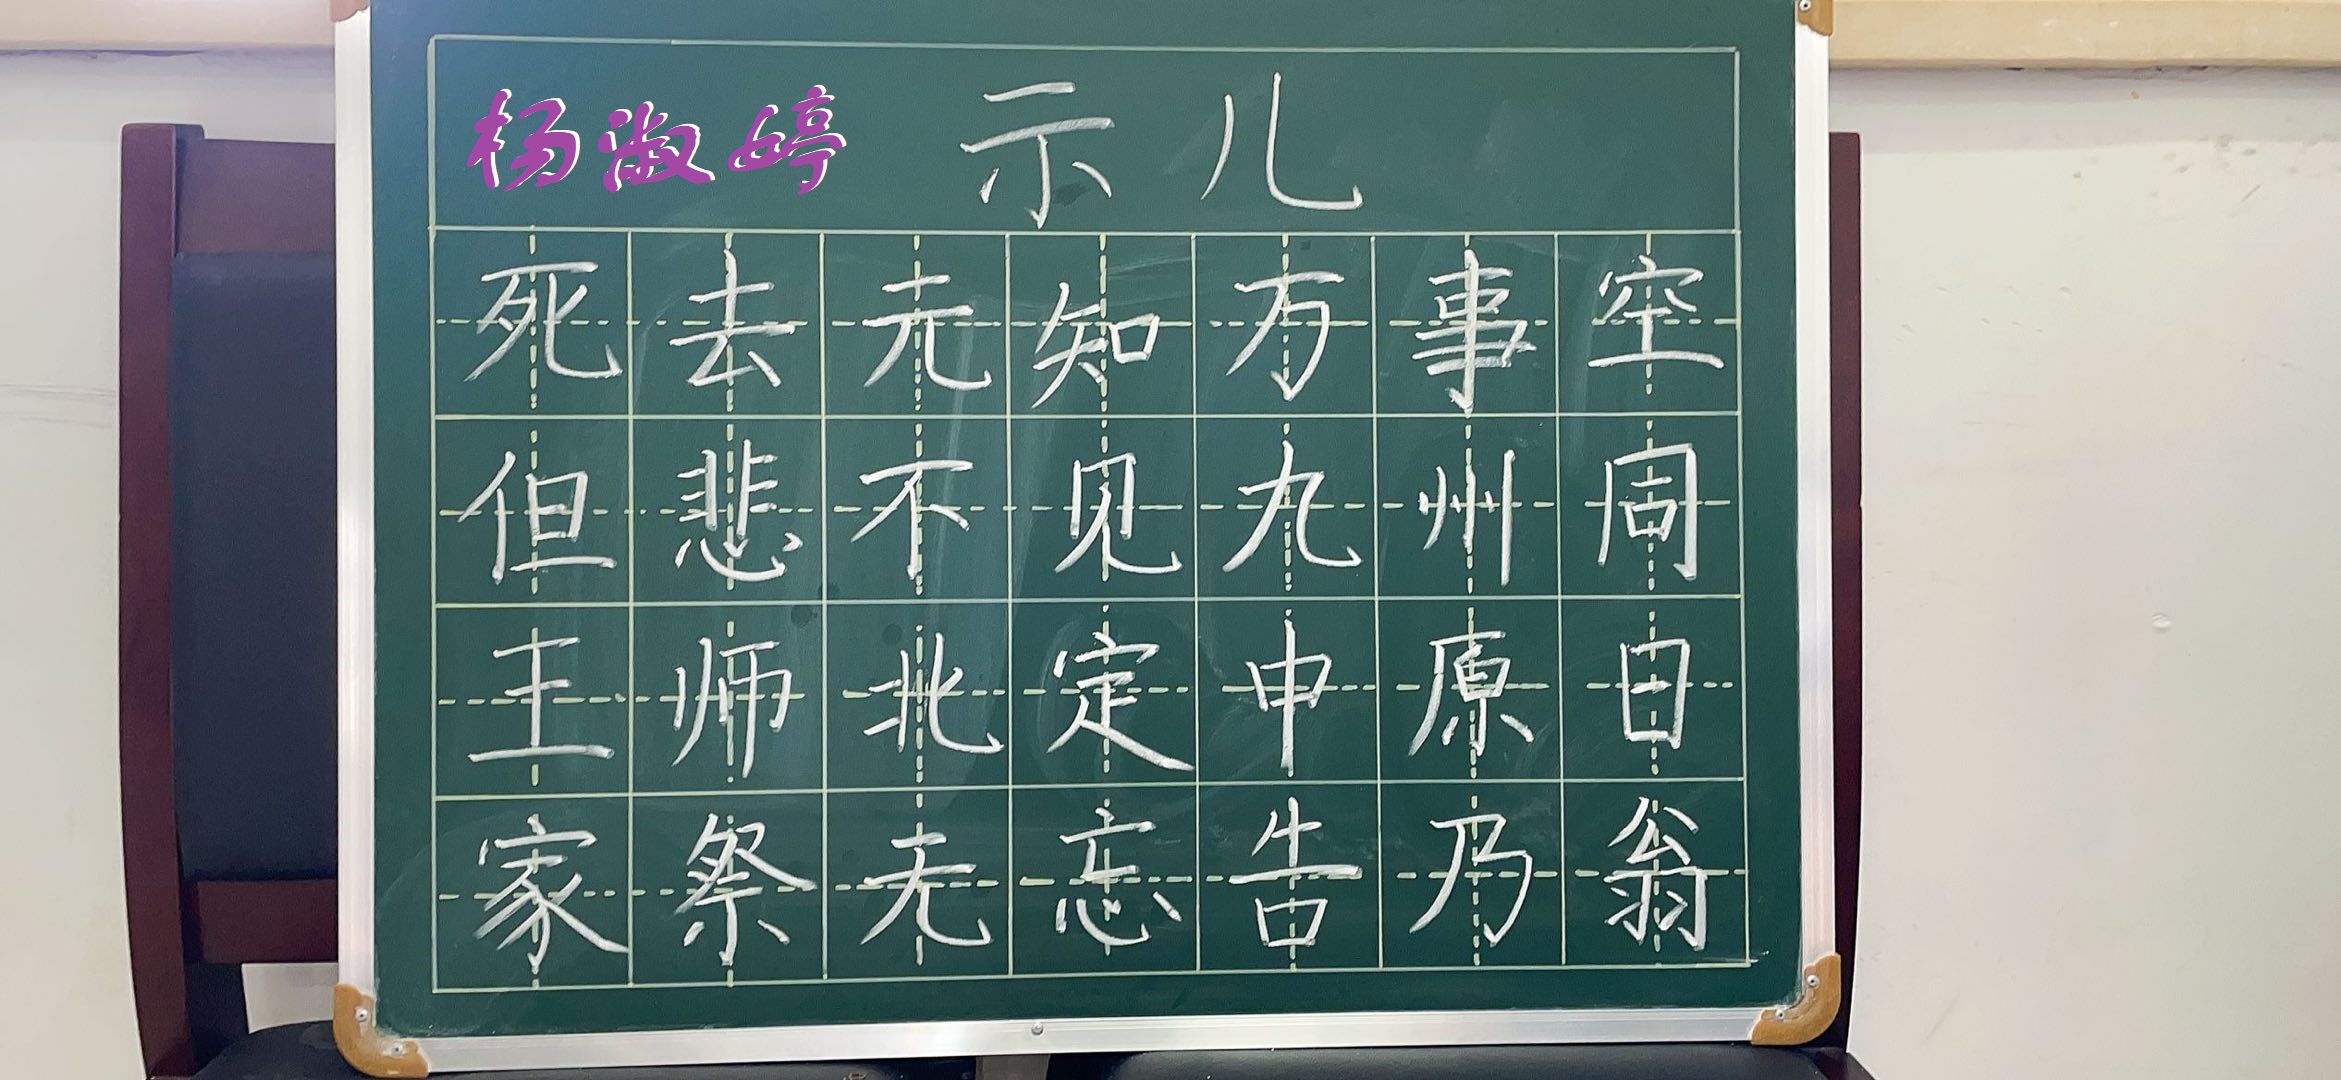 杨淑婷 示儿
死去元知万事空
但悲不见九州同
王师北定中原日
家祭无忘告乃翁